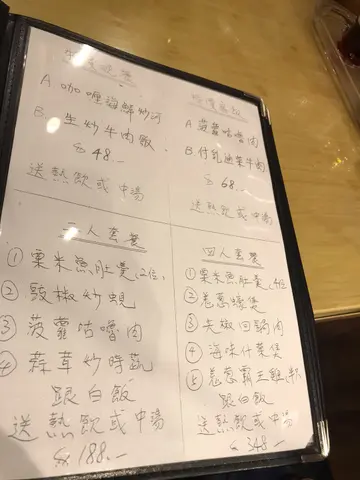 A 咖喱海鮮炒河
B. 生炒牛肉飯
$ 48.—
送熱飲或中湯
A 菠蘿咕嚕肉
B. 付乳通菜牛肉
$ 68.—
送熱飲或中湯
二人套餐
① 栗米魚肚羹(2位)
② 豉椒炒蜆
③ 菠蘿咕嚕肉
④ 蒜茸炒時蔬
跟白飯
送熱飲或中湯
$ 188.—
四人套餐
① 栗米魚肚羹(4位)
② 羌蔥蠔煲
③ 尖椒回鍋肉
④ 海味什菜煲
⑤ 羌蔥霸王雞(半)
跟白飯
送熱飲或中湯
$ 348.—